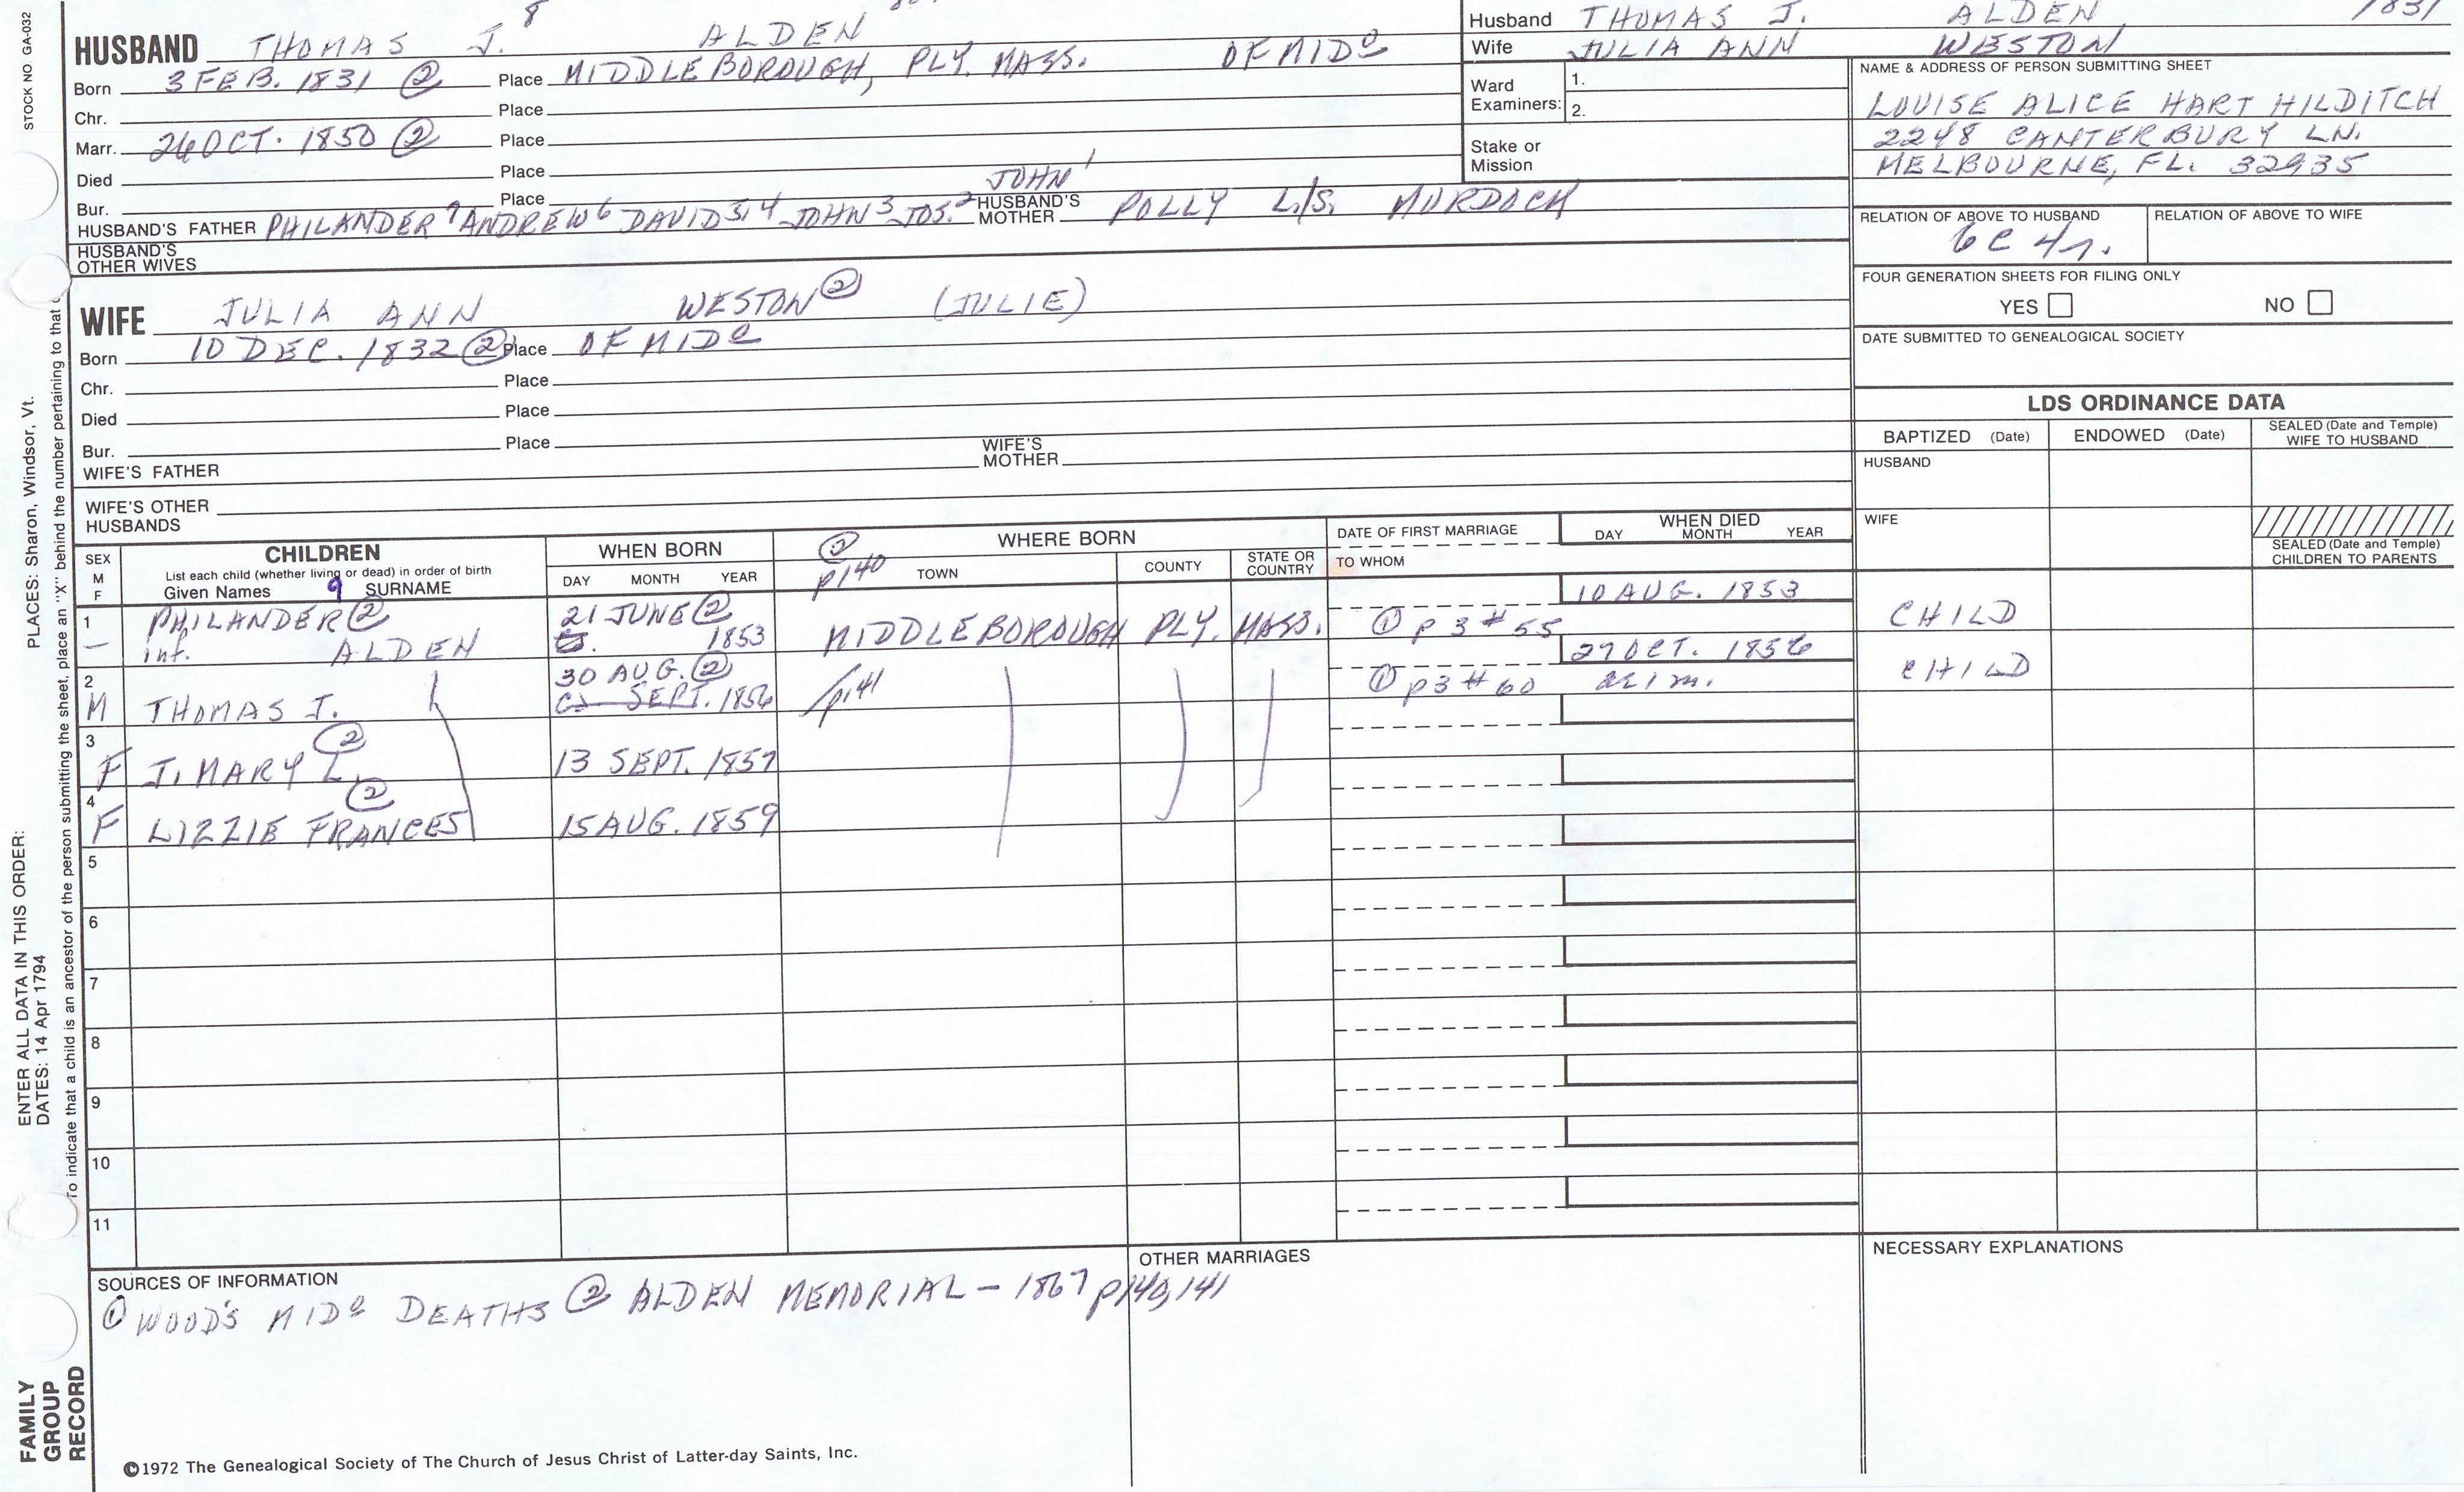 STOCK NO GA-032
HUSBAND THOMAS J. 8 ALDEN
Born 3 FEB. 1831 ② Place MIDDLEBOROUGH, PLY. MASS. OF MIDº
Chr. Place
Marr. 26 OCT. 1850 ② Place
Died Place
Bur. Place
HUSBAND'S FATHER PHILANDER 7 ANDREW 6 DAVID 5,4 JOHN 3 JOS. 2 JOHN 1 HUSBAND'S MOTHER POLLY L./S. MURDOCK
HUSBAND'S OTHER WIVES
WIFE JULIA ANN WESTON ② (JULIE)
Born 10 DEC. 1832 ② Place OF MIDº
Chr. Place
Died Place
Bur. Place
WIFE'S FATHER WIFE'S MOTHER
WIFE'S OTHER HUSBANDS
Husband THOMAS J. ALDEN 1831
Wife JULIA ANN WESTON
Ward Examiners: 1.
2.
Stake or Mission
NAME & ADDRESS OF PERSON SUBMITTING SHEET
LOUISE ALICE HART HILDITCH
2248 CANTERBURY LN.
MELBOURNE, FL. 32935
RELATION OF ABOVE TO HUSBAND RELATION OF ABOVE TO WIFE
6C 4r.
FOUR GENERATION SHEETS FOR FILING ONLY
YES NO
DATE SUBMITTED TO GENEALOGICAL SOCIETY
LDS ORDINANCE DATA
BAPTIZED (Date) ENDOWED (Date) SEALED (Date and Temple) WIFE TO HUSBAND
HUSBAND
WIFE
SEALED (Date and Temple) CHILDREN TO PARENTS
SEX M F
CHILDREN
List each child (whether living or dead) in order of birth
Given Names 9 SURNAME
WHEN BORN
DAY MONTH YEAR
② p140
WHERE BORN
TOWN COUNTY STATE OR COUNTRY
DATE OF FIRST MARRIAGE
TO WHOM
WHEN DIED
DAY MONTH YEAR
1 PHILANDER ② 21 JUNE ② 10 AUG. 1853
— inf. ALDEN 1853 MIDDLEBOROUGH PLY. MASS. ① p 3 # 55 CHILD
2 30 AUG. ② 27 OCT. 1856
M THOMAS J. SEPT. 1856 p.141 ① p3 # 60 ae 1 m. CHILD
3 ②
F J. MARY L. 13 SEPT. 1857
4 ②
F LIZZIE FRANCES 15 AUG. 1859
5
6
7
8
9
10
11
SOURCES OF INFORMATION
① WOOD'S MIDº DEATHS ② ALDEN MEMORIAL – 1867 p140, 141
OTHER MARRIAGES
NECESSARY EXPLANATIONS
©1972 The Genealogical Society of The Church of Jesus Christ of Latter-day Saints, Inc.
ENTER ALL DATA IN THIS ORDER:
DATES: 14 Apr 1794
PLACES: Sharon, Windsor, Vt.
To indicate that a child is an ancestor of the person submitting the sheet, place an "X" behind the number pertaining to that
FAMILY GROUP RECORD